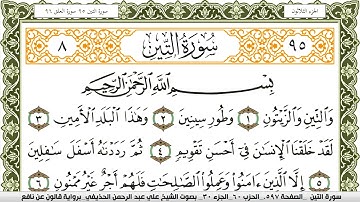 الجزء الثلاثون
سورة التين ٩٥ سورة العلق ٩٦
٩٥
سُورَةُ التِّينِ
٨
بِسْمِ اللَّهِ الرَّحْمَٰنِ الرَّحِيمِ
وَالتِّينِ وَالزَّيْتُونِ ١ وَطُورِ سِينِينَ ٢ وَهَٰذَا الْبَلَدِ الْأَمِينِ ٣
لَقَدْ خَلَقْنَا الْإِنسَٰنَ فِي أَحْسَنِ تَقْوِيمٍ ٤ ثُمَّ رَدَدْنَٰهُ أَسْفَلَ سَٰفِلِينَ
٥ إِلَّا الَّذِينَ ءَامَنُوا وَعَمِلُوا الصَّٰلِحَٰتِ فَلَهُمْ أَجْرٌ غَيْرُ مَمْنُونٍ ٦
سورة التين الصفحة ٥٩٧ الحزب ٦٠ الجزء ٣٠ بصوت الشيخ علي عبد الرحمن الحذيفي برواية قالون عن نافع